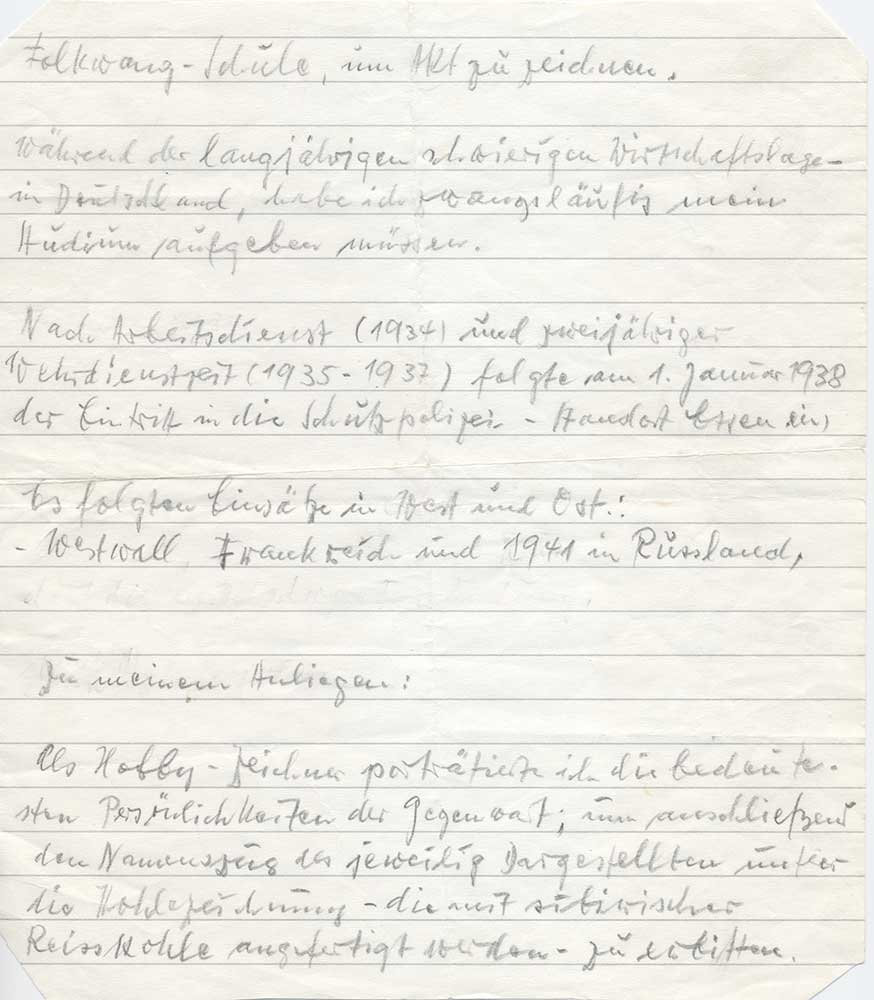 Folkwang-Schule, um Akt zu zeichnen.
Während der langjährigen schwierigen Wirtschaftslage
in Deutschland, habe ich zwangsläufig mein
Studium aufgeben müssen.
Nach Arbeitsdienst (1934) und zweijähriger
Wehrdienstzeit (1935-1937) folgte am 1. Januar 1938
der Eintritt in die Schutzpolizei - Standort Essen ein,
Es folgten Einsätze in West und Ost.:
- Westwall, Frankreich und 1941 in Russland,
Zu meinem Anliegen:
Als Hobby-Zeichner porträtierte ich die bedeute-
sten Persönlichkeiten der Gegenwart; um anschließend
den Namenszug des jeweilig Dargestellten unter
die Kohlezeichnung - die mit sibirischer
Reisskohle angefertigt werden - zu erbitten.